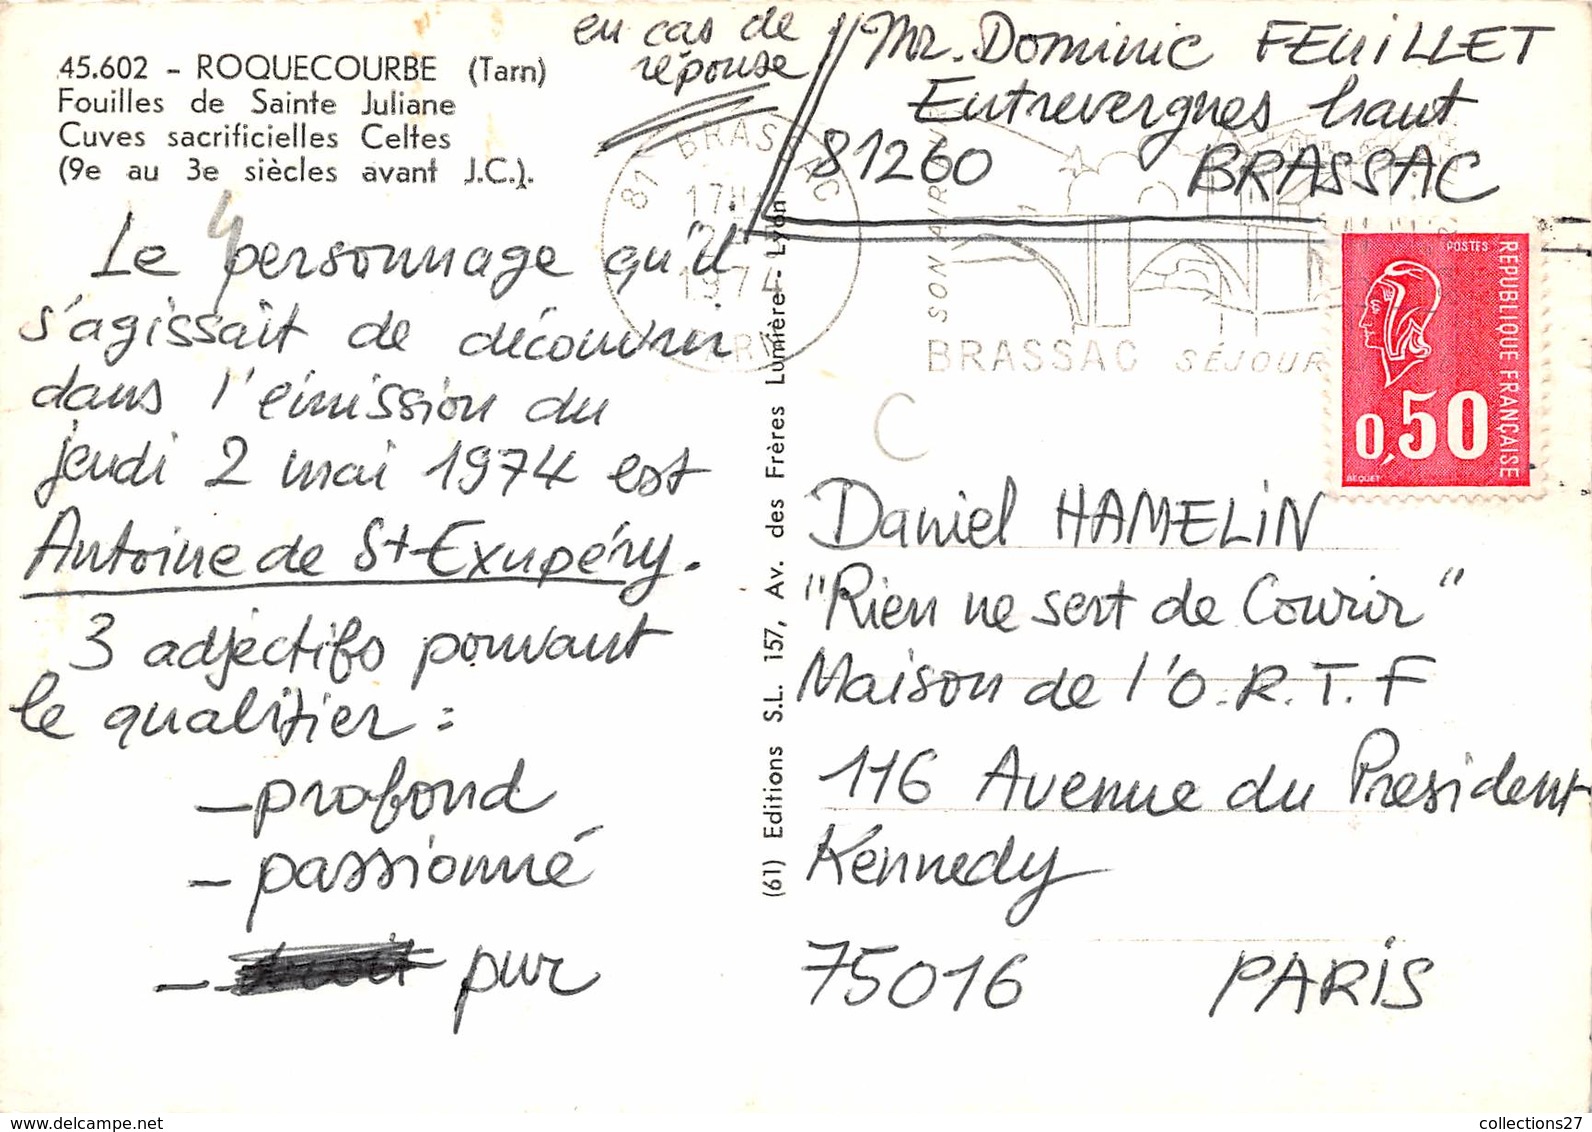 45.602 - ROQUECOURBE (Tarn)
Fouilles de Sainte Juliane
Cuves sacrificielles Celtes
(9e au 3e siècles avant J.C.).
en cas de
réponse
Mr. Dominic FEUILLET
Entrevergnes haut
81260 BRASSAC
81 BRASSAC
1974
SON AIR
BRASSAC SÉJOUR
POSTES
REPUBLIQUE FRANÇAISE
0,50
BEQUET
Le personnage qu'il
s'agissait de découvrir
dans l'émission du
jeudi 2 mai 1974 est
Antoine de St-Exupéry.
3 adjectifs pouvant
le qualifier :
- profond
- passionné
- pur
(61) Editions S.L. 157, Av. des Frères Lumière - Lyon
C
Daniel HAMELIN
"Rien ne sert de Courir"
Maison de l'O.R.T.F
116 Avenue du President
Kennedy
75016 PARIS
collections27